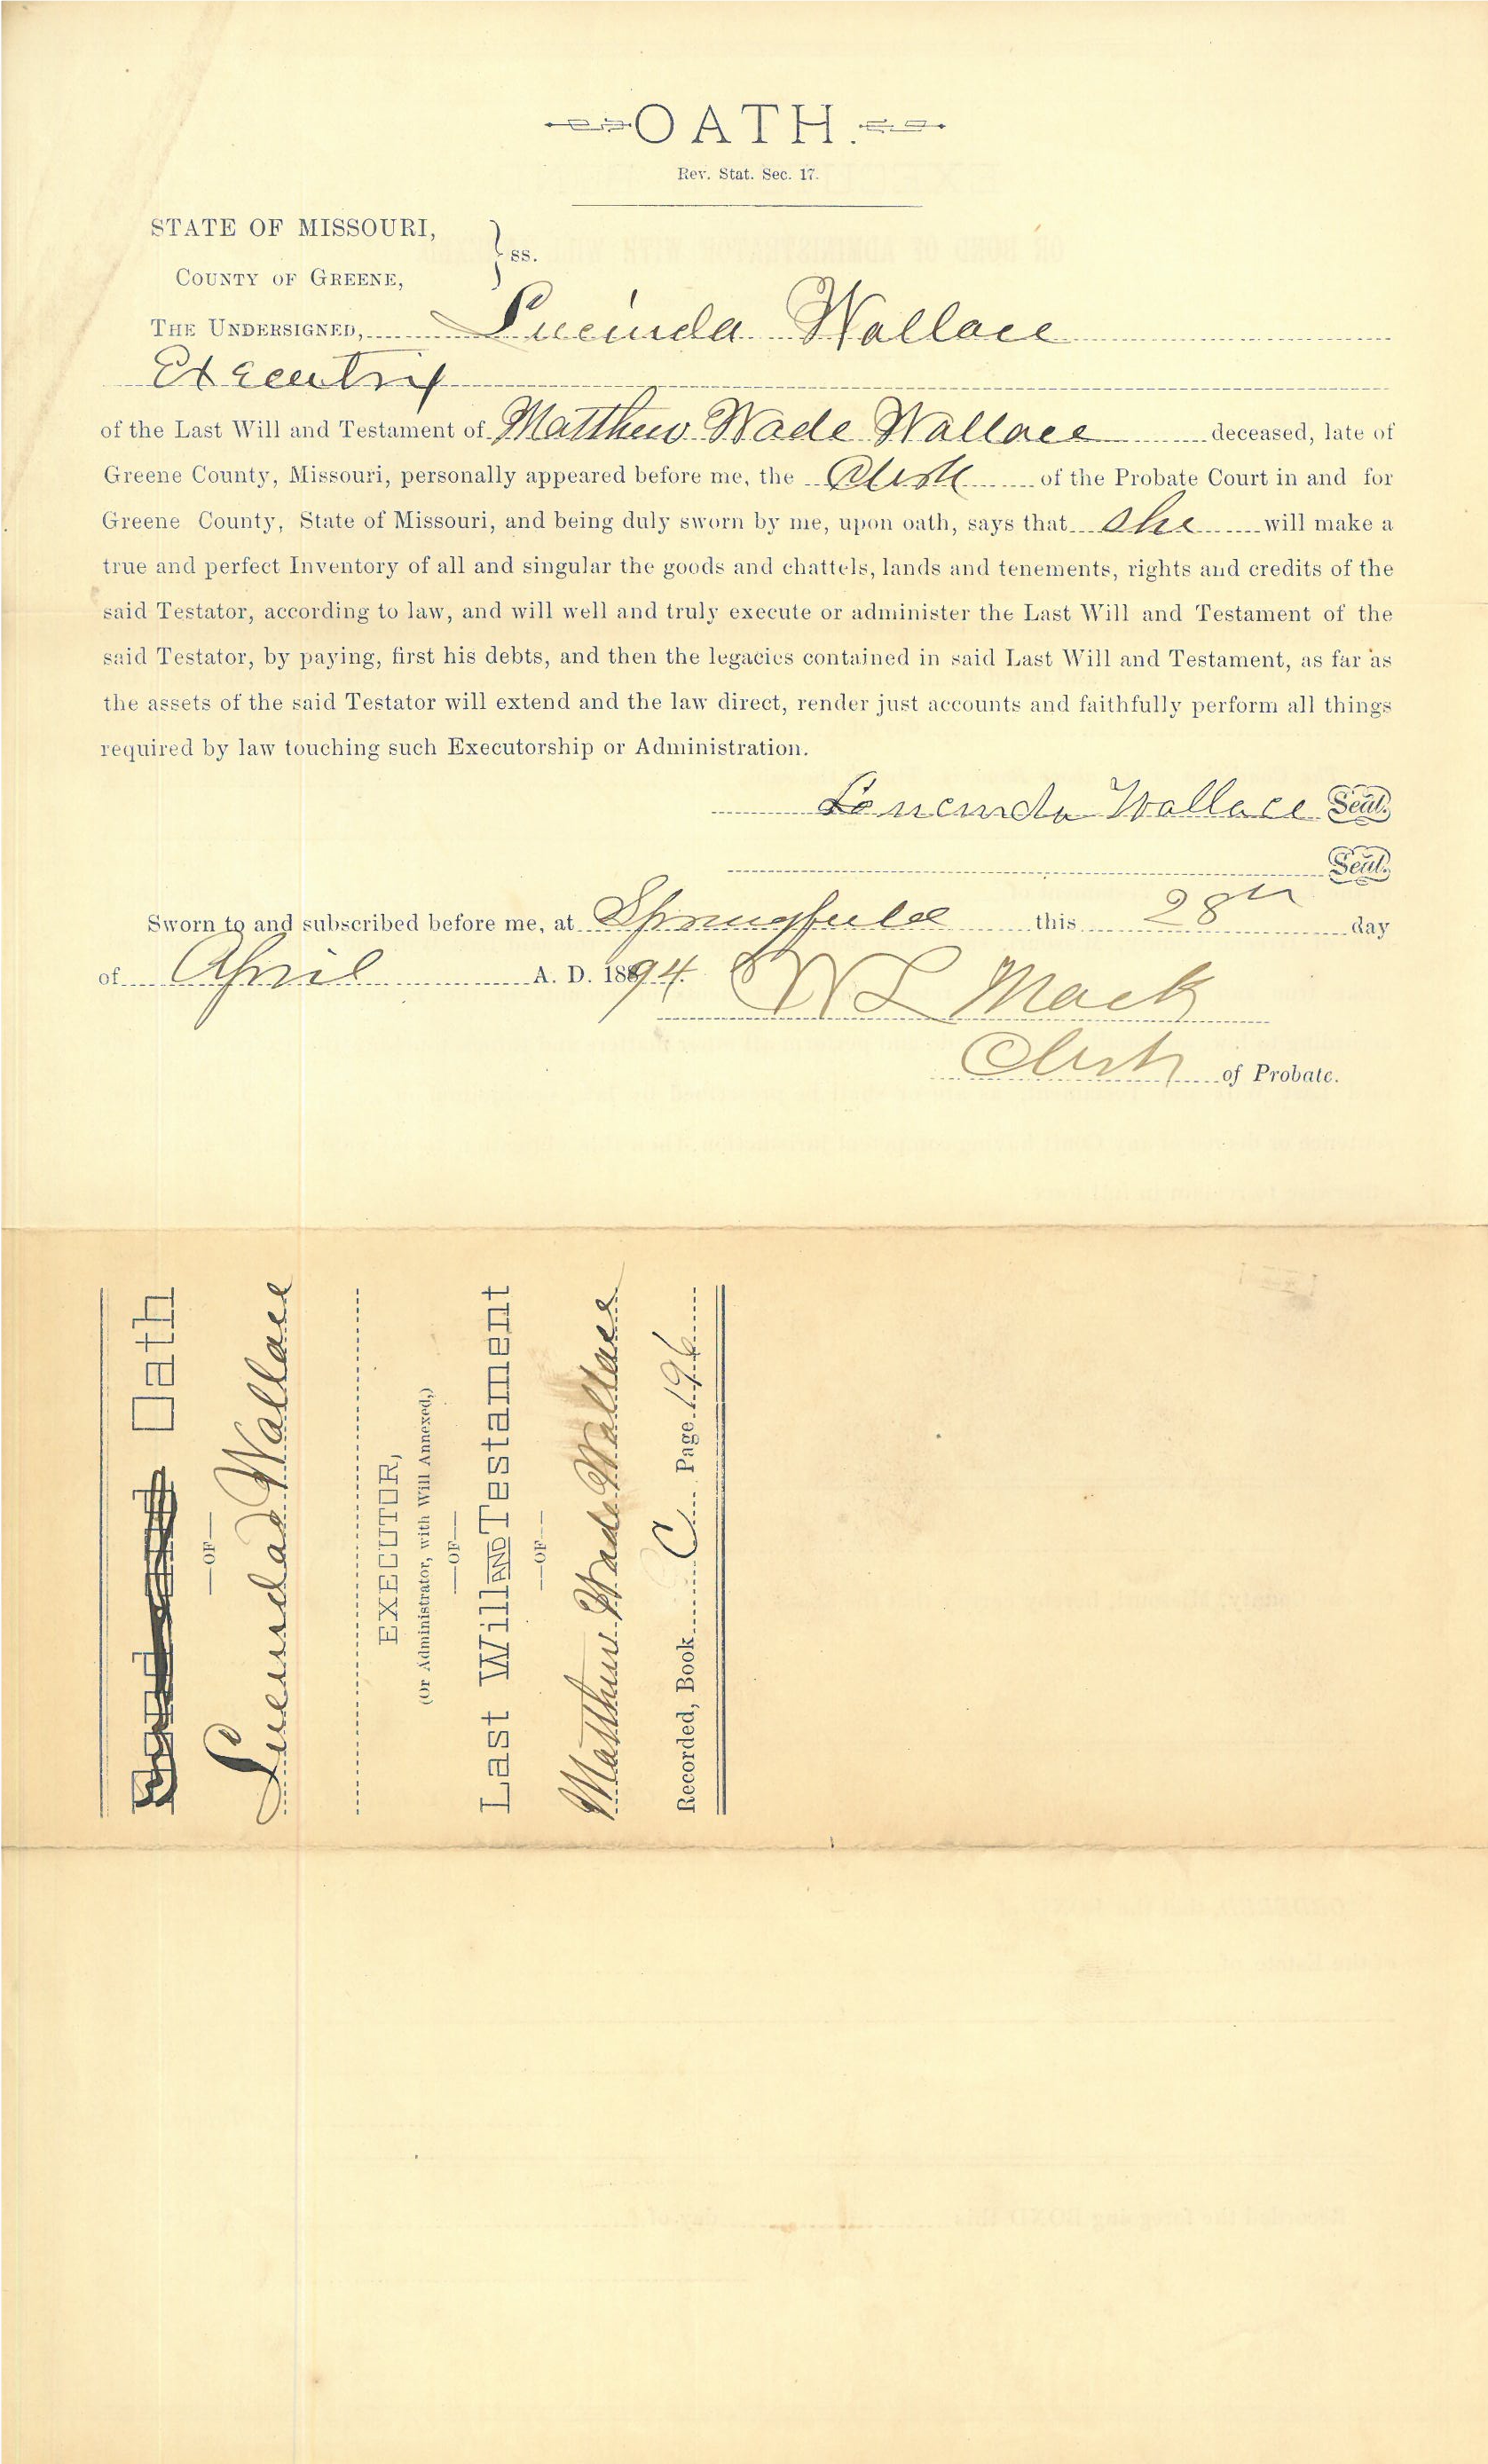 OATH.
Rev. Stat. Sec. 17.
STATE OF MISSOURI,
COUNTY OF GREENE, } ss.
THE UNDERSIGNED, Lucinda Wallace
Executrix
of the Last Will and Testament of Matthew Wade Wallace deceased, late of
Greene County, Missouri, personally appeared before me, the Clerk of the Probate Court in and for
Greene County, State of Missouri, and being duly sworn by me, upon oath, says that she will make a
true and perfect Inventory of all and singular the goods and chattels, lands and tenements, rights and credits of the
said Testator, according to law, and will well and truly execute or administer the Last Will and Testament of the
said Testator, by paying, first his debts, and then the legacies contained in said Last Will and Testament, as far as
the assets of the said Testator will extend and the law direct, render just accounts and faithfully perform all things
required by law touching such Executorship or Administration.
Loucinda Wallace Seal.
Seal.
Sworn to and subscribed before me, at Springfield this 28th day
of April A. D. 1894.
W L Mack
Clerk of Probate.
Oath
—OF—
Lucinda Wallace
EXECUTOR,
(Or Administrator, with Will Annexed,)
—OF—
Last Will AND Testament
—OF—
Matthew Wade Wallace
Recorded, Book C Page 196